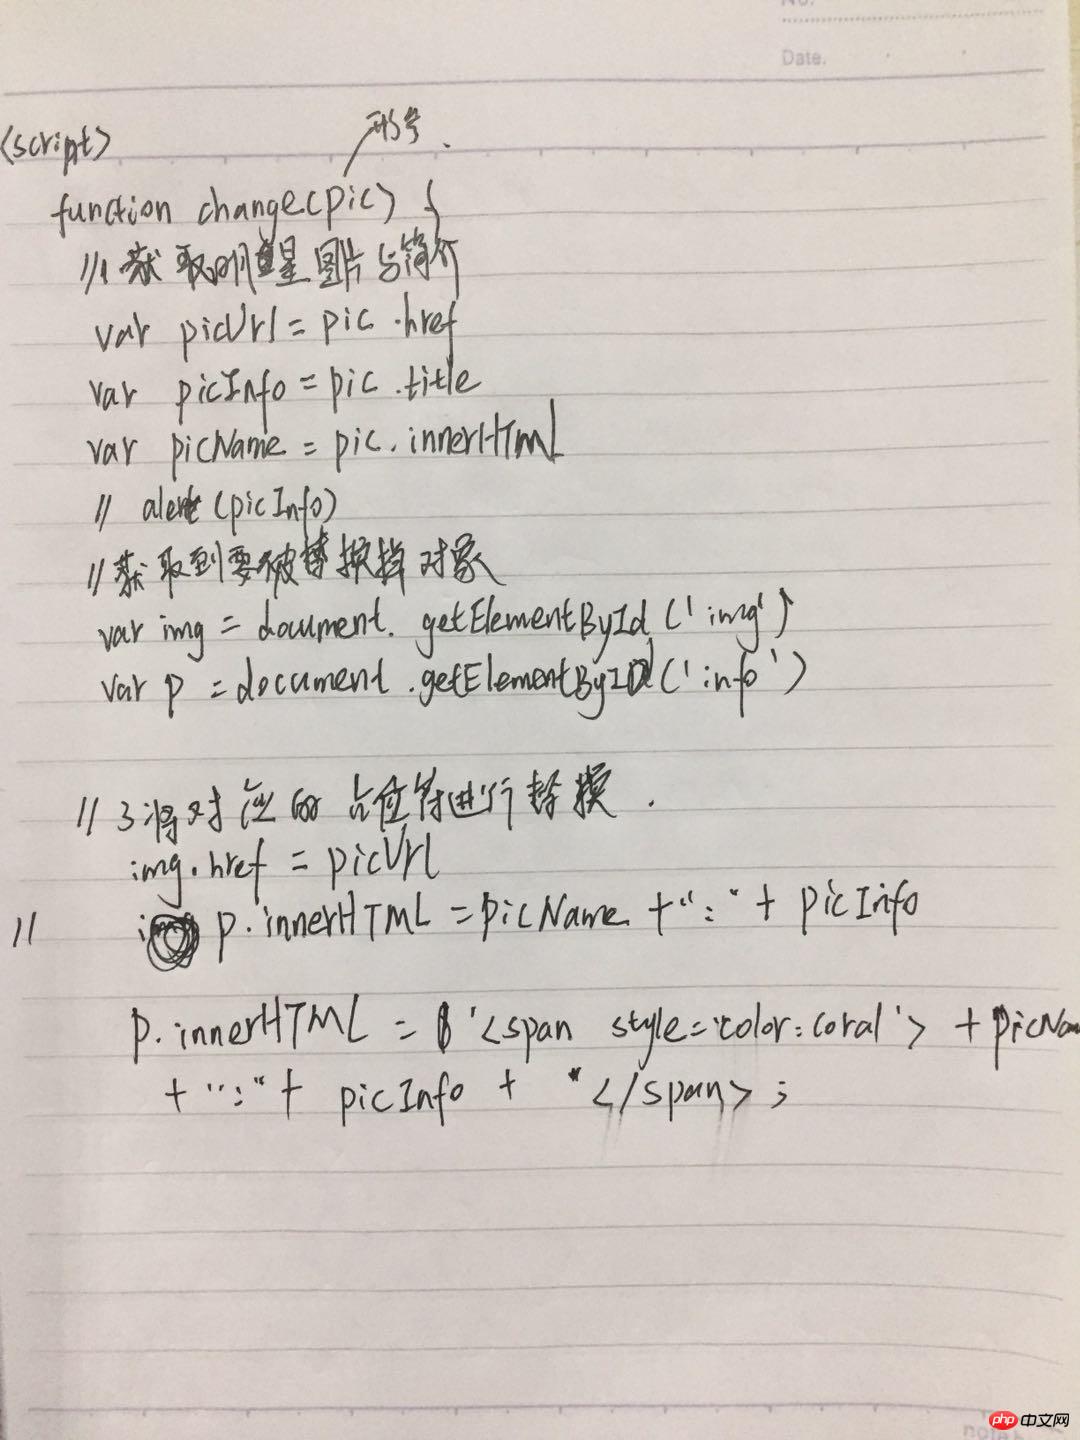 No.
Date.
形参.
<script>
function change(pic) {
//1 获取明星图片与简介
var picUrl = pic .href
var picInfo = pic .title
var picName = pic. innerHTML
// alert (picInfo)
//获取到要被替换掉对象
var img = document. getElementById ('img')
var p = document .getElementById ('info')
// 3 将对应的占位符进行替换.
img.href = picUrl
// p.innerHTML = picName + ":" + picInfo
p.innerHTML = '<span style='color:coral'> + picNam
+ ":" + picInfo + "</span> ;
note
php 中文网